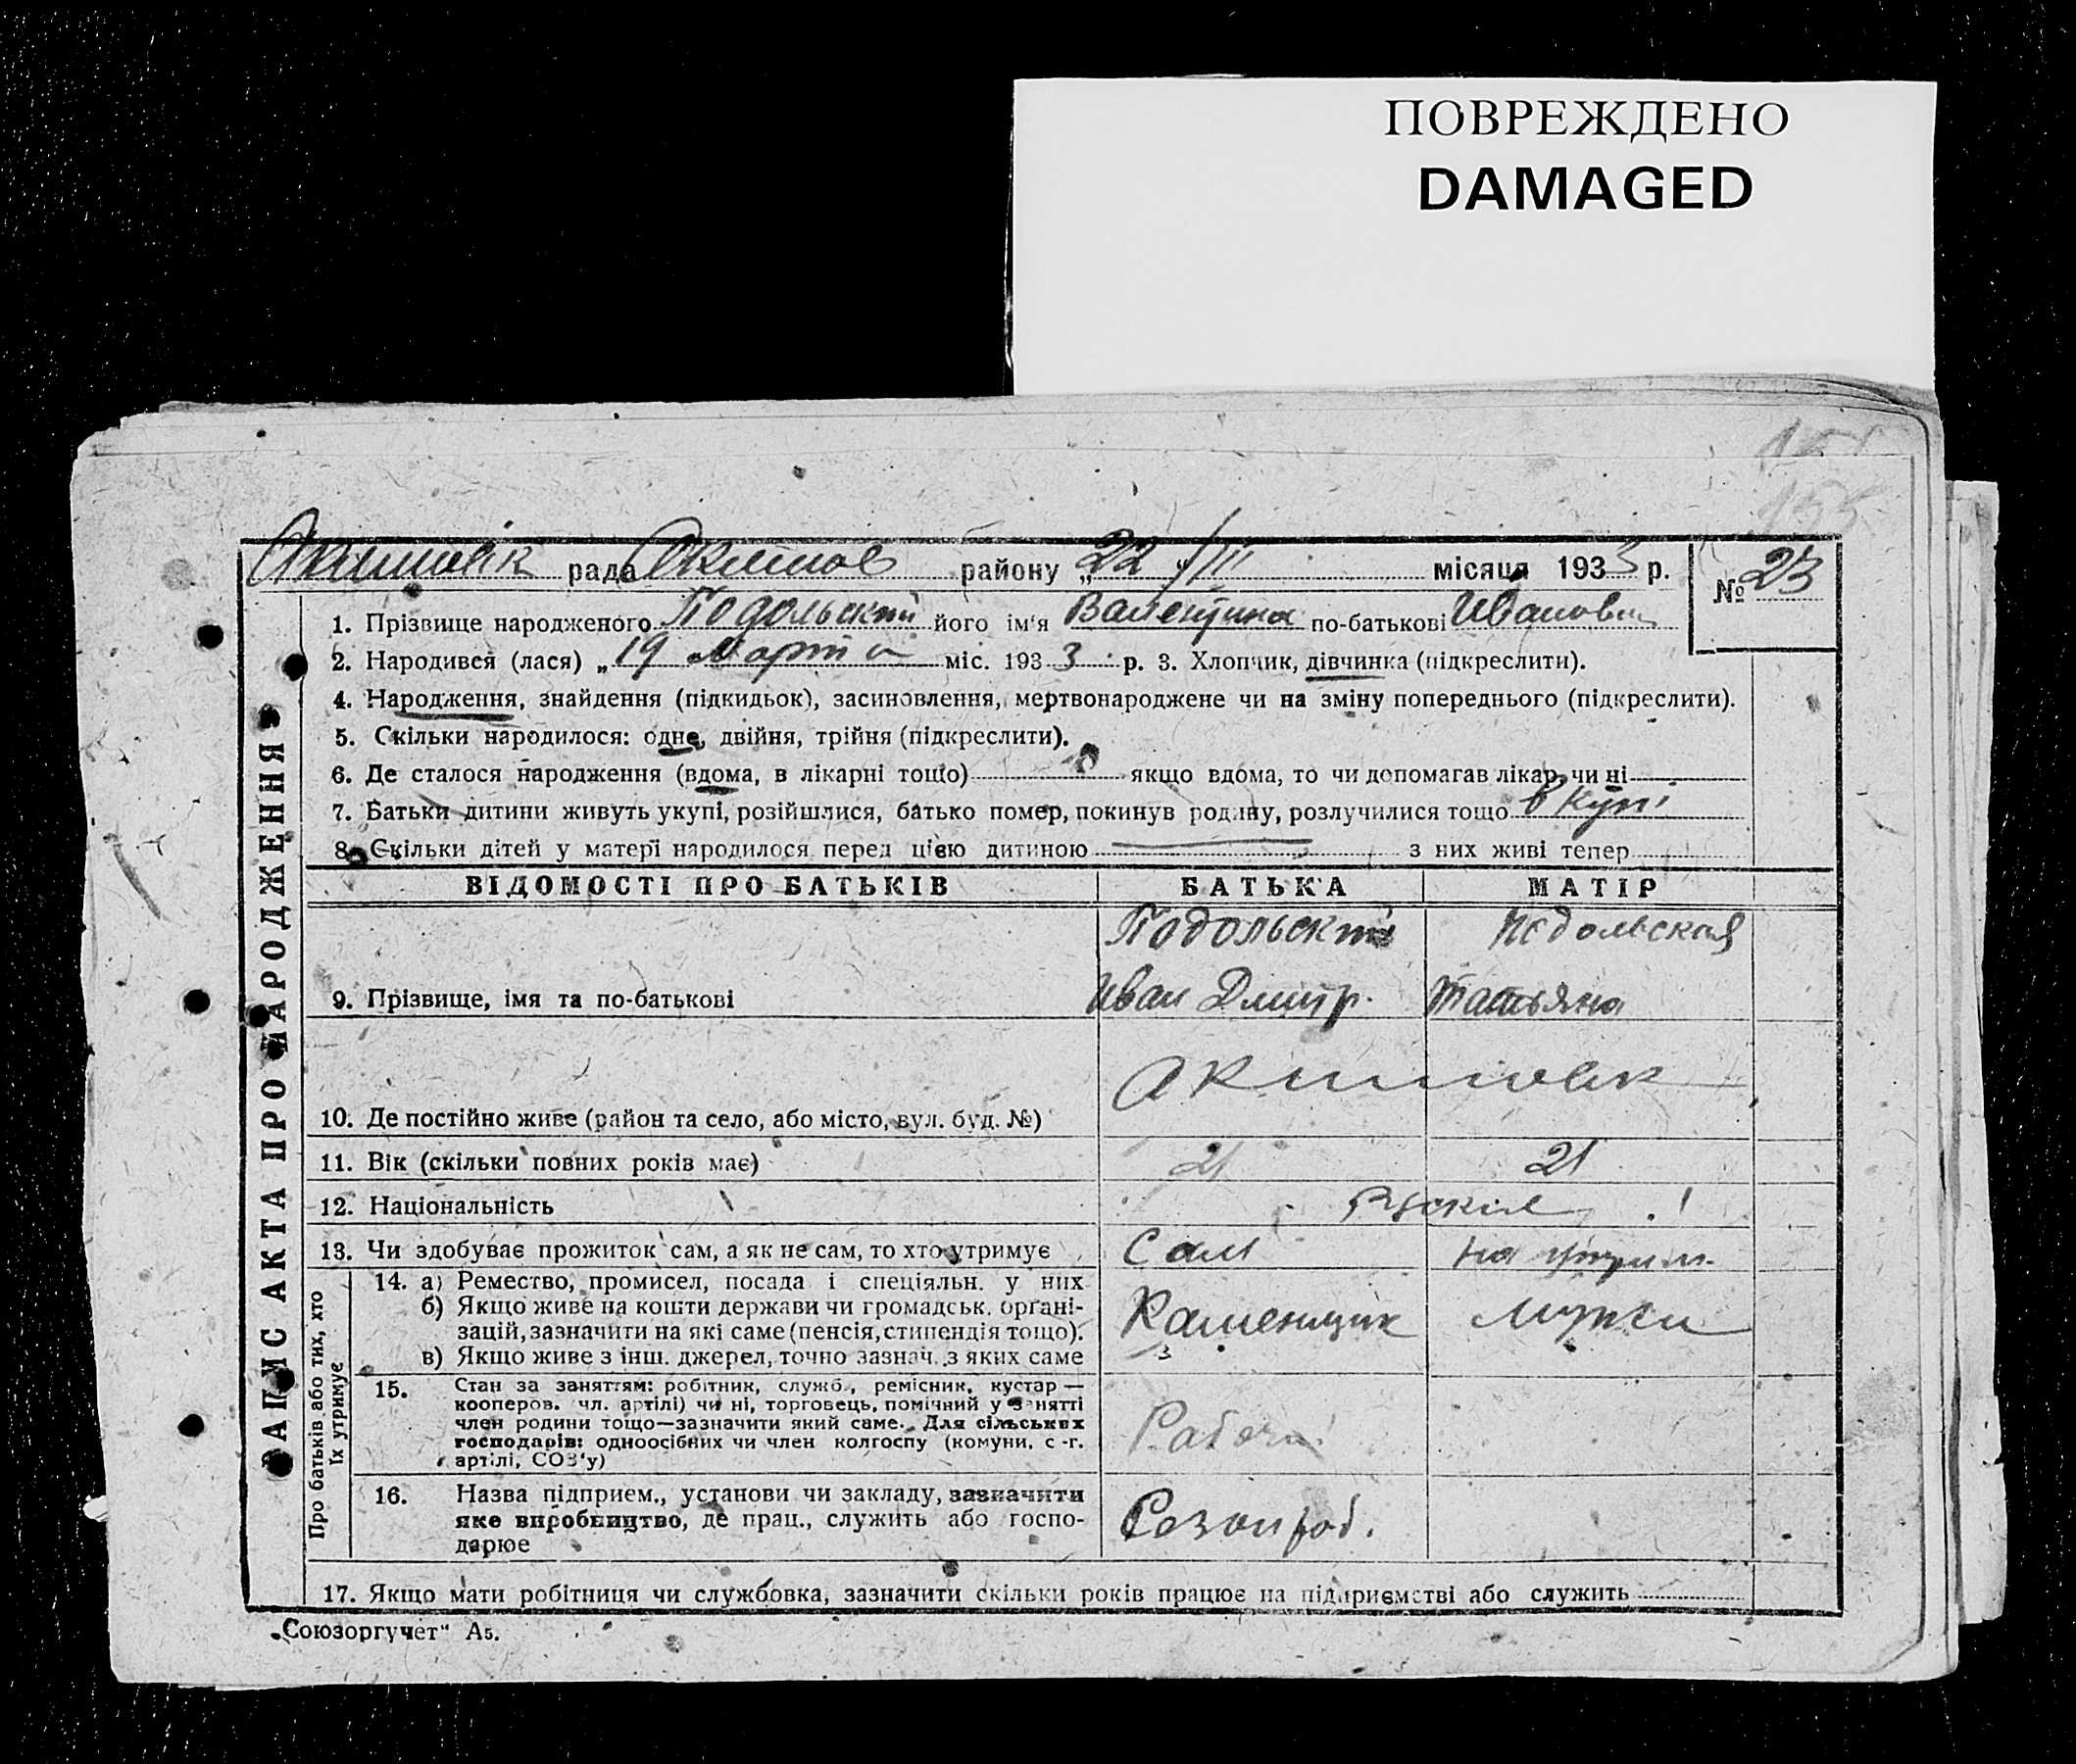 ПОВРЕЖДЕНО
DAMAGED
155
Акимовск рада Акимов району „22“ /III місяця 1933 р. № 23
1. Прізвище народженого Подольский його ім'я Валентина по-батькові Ивановн
2. Народився (лася) „19 Марта міс. 1933 р. 3. Хлопчик, дівчинка (підкреслити).
4. Народження, знайдення (підкидьок), засиновлення, мертвонароджене чи на зміну попереднього (підкреслити).
5. Скільки народилося: одне, двійня, трійня (підкреслити).
6. Де сталося народження (вдома, в лікарні тощо) якщо вдома, то чи допомагав лікар, чи ні
7. Батьки дитини живуть укупі, розійшлися, батько помер, покинув родину, розлучилися тощо вкупі
8. Скільки дітей у матері народилося перед цією дитиною — з них живі тепер
ЗАПИС АКТА ПРО НАРОДЖЕННЯ
ВІДОМОСТІ ПРО БАТЬКІВ БАТЬКА МАТІР
Подольский Подольская
9. Прізвище, імя та по-батькові Иван Дмитр. Татьяна
Акимовк
10. Де постійно живе (район та село, або місто, вул. буд. №)
11. Вік (скільки повних років має) 21 21
12. Національність Рускіе
13. Чи здобуває прожиток сам, а як не сам, то хто утримує Сам на утрим.
Про батьків або тих, хто їх утримує
14. а) Ремество, промисел, посада і спеціяльн. у них
б) Якщо живе на кошти держави чи громадськ. органі-
зацій, зазначити на які саме (пенсія, стипендія тощо). Каменщик мужа
в) Якщо живе з інш. джерел, точно зазнач. з яких саме
15. Стан за заняттям: робітник, служб., ремісник, кустар —
кооперов. чл. артілі) чи ні, торговець, помічний у занятті
член родини тощо—зазначити який саме. Для сільських
господарів: одноосібних чи член колгоспу (комуни, с.-г. Рабочи
артілі, СОЗ'у)
16. Назва підприєм., установи чи закладу, зазначити
яке виробництво, де прац., служить або госпо- Сезон раб.
дарює
17. Якщо мати робітниця чи службовка, зазначити скільки років працює на підприємстві або служить
„Союзоргучет“ А5.